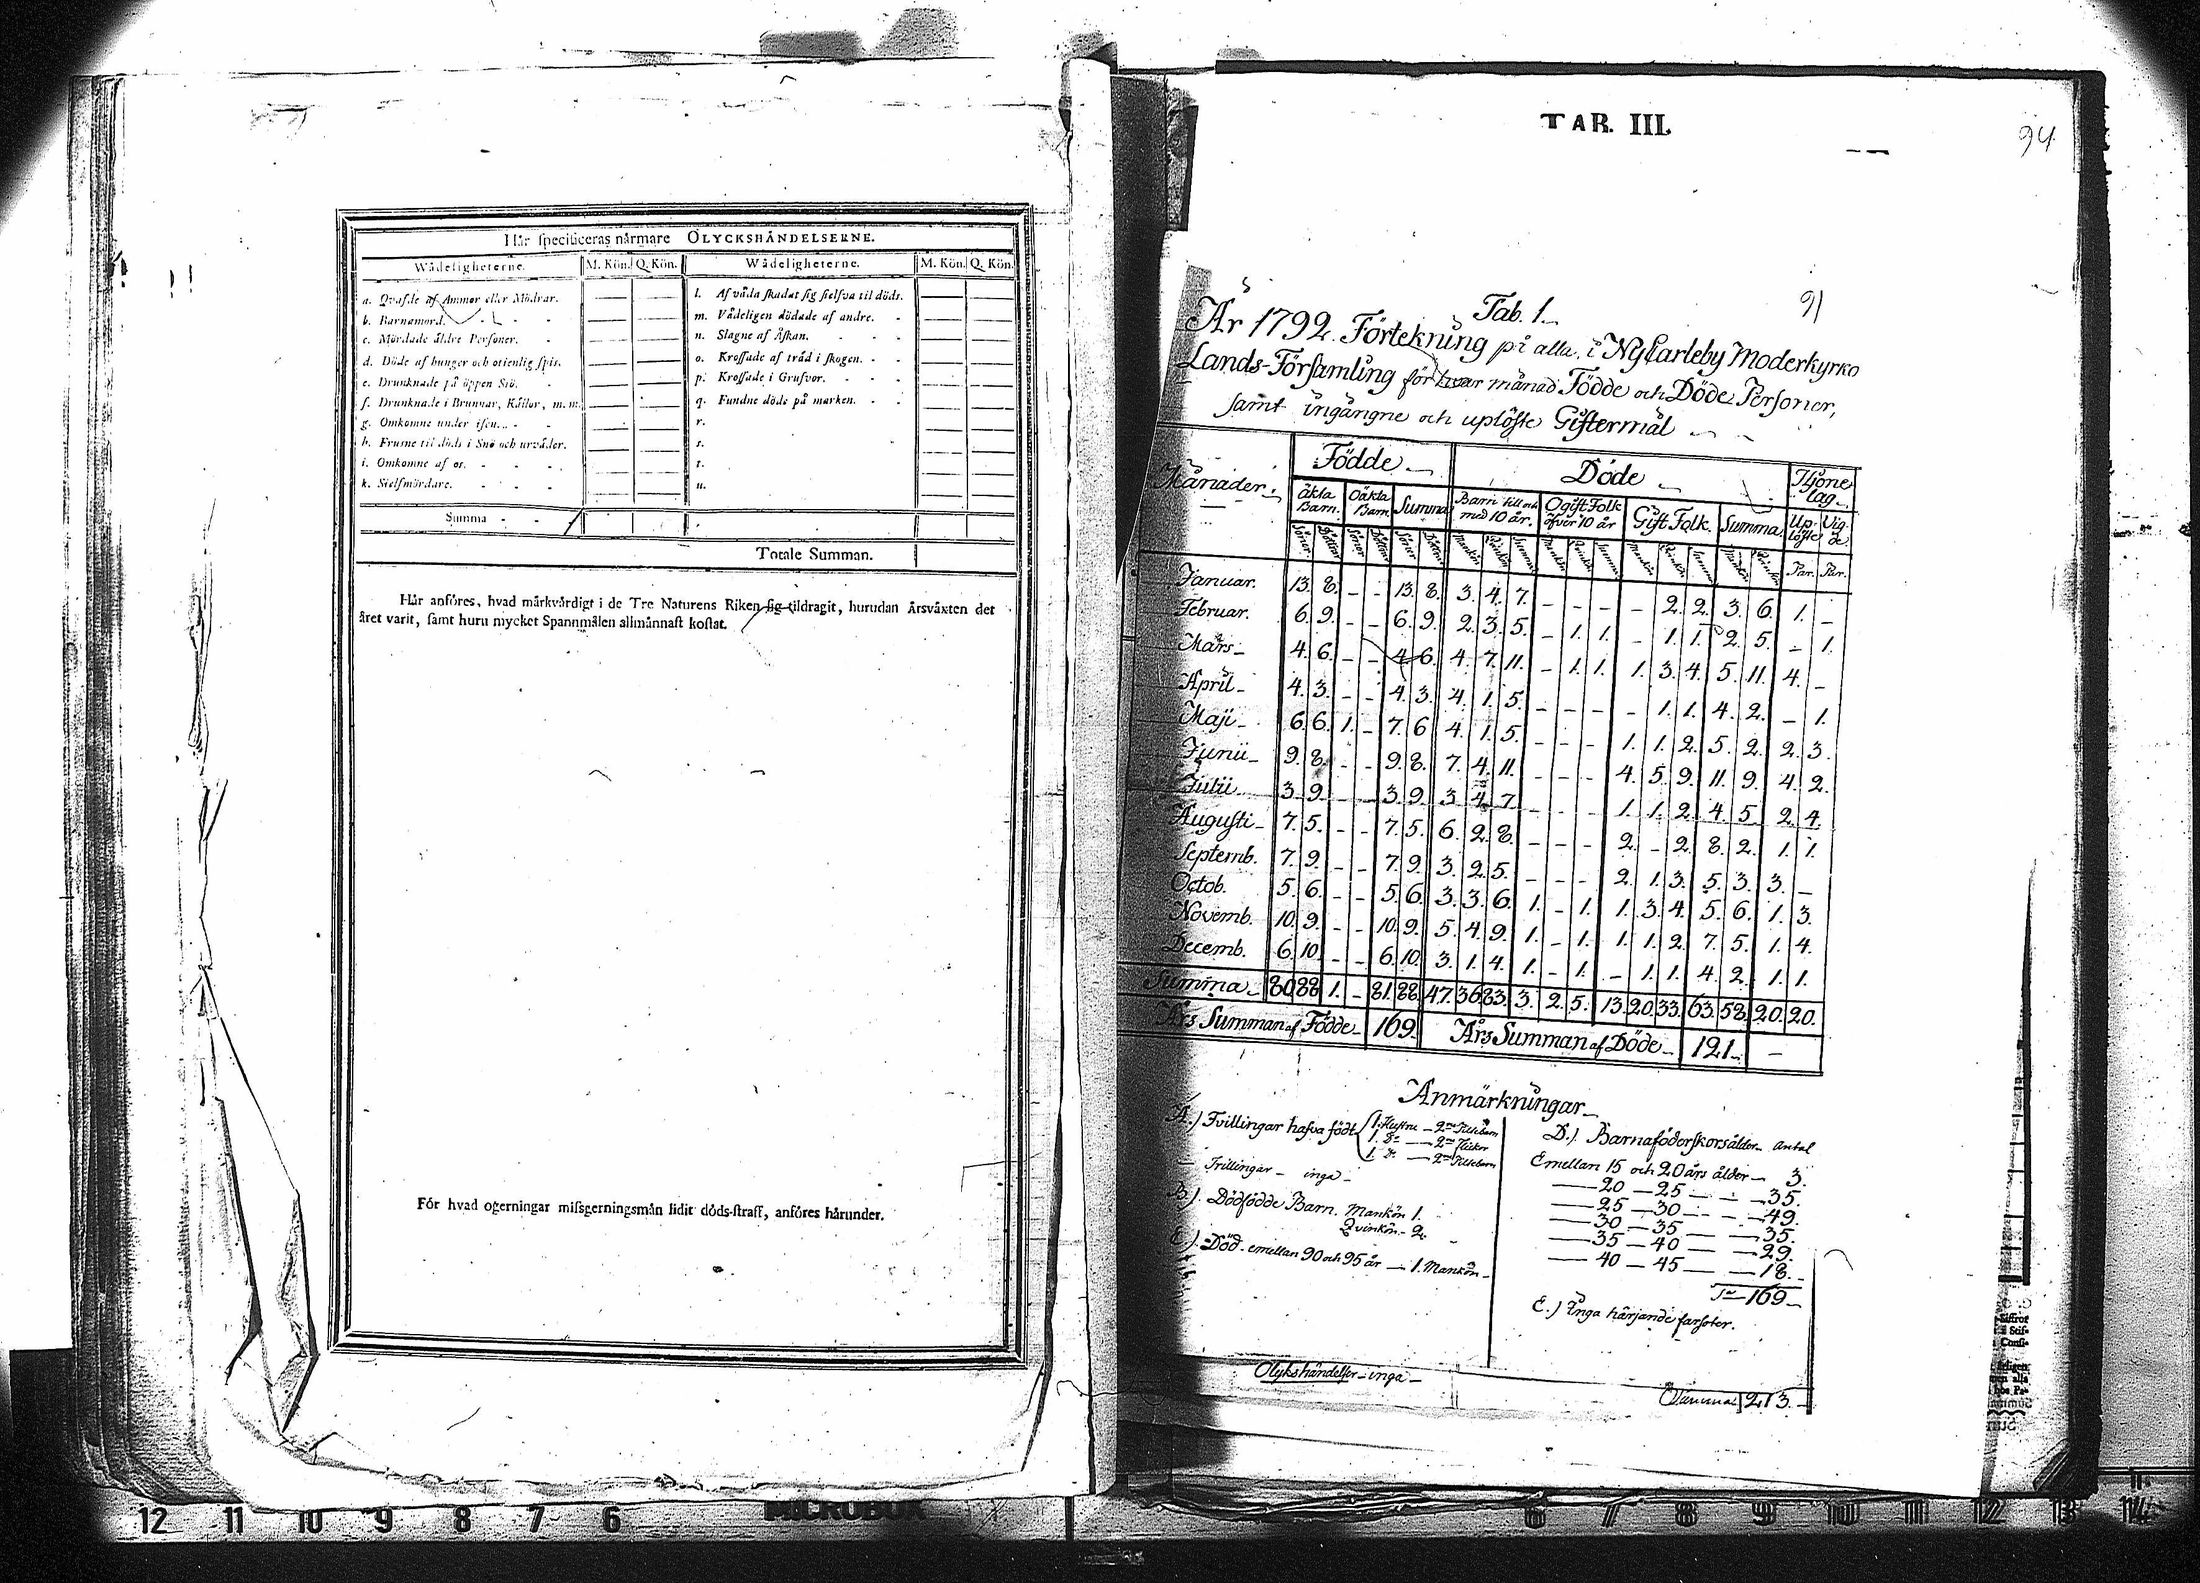 Hår specificeras nårmare OLYCKSHÅNDELSERNE.
Wådeligheterne. M. Kön. Q. Kön. Wådeligheterne. M. Kön. Q. Kön.
a. Qvafde af Ammor eller Mödrar. l. Af våda skadat sig sielfva til döds.
b. Barnamord. m. Vådeligen dödade af andre.
c. Mördade äldre Personer. n. Slagne af Åskan.
d. Döde af hunger och otienlig spis. o. Krossade af tråd i skogen.
e. Drunknade på öppen Siö. p. Krossade i Grufvor.
f. Drunknade i Brunnar, Kållor, m.m. q. Fundne döds på marken.
g. Omkomne under isen. r.
h. Frusne til döds i Snö och urväder. s.
i. Omkomne af os. t.
k. Sielfmördare. u.
Summa
Totale Summan.
Hår anföres, hvad mårkvårdigt i de Tre Naturens Riken sig tildragit, hurudan Årsvåxten det
året varit, samt huru mycket Spannmålen allmånnast kostat.
För hvad ogerningar missgerningsmån lidit döds-straff, anföres hårunder.
TAB. III.
94
Tab. 1.
91
År 1792. Förtekning på alla, i Nykarleby Moderkyrko
Lands-Församling för hvar månad Födde och Döde Personer,
samt ingångne och uplöste Giftermål
Månader. Födde Döde Hjonelag
äkta Barn. Oäkta Barn. Summa Barn till och med 10 år. Ogift Folk öfver 10 år Gift Folk. Summa Uplöste Vigde
Söner Döttrar Söner Döttrar Söner Döttrar Mankön Qvinkön Summa Mankön Qvinkön Summa Mankön Qvinkön Summa Mankön Qvinkön Par. Par.
Januar. 13. 8. - - 13. 8. 3. 4. 7. - - - - 2. 2. 3. 6. 1. -
Februar. 6. 9. - - 6. 9. 2. 3. 5. - 1. 1. - 1. 1. 2. 5. - 1.
Mars 4. 6. - - 4. 6. 4. 7. 11. - 1. 1. 1. 3. 4. 5. 11. 4. -
April 4. 3. - - 4. 3. 4. 1. 5. - - - - 1. 1. 4. 2. - 1.
Maji 6. 6. 1. - 7. 6 4. 1. 5. - - - 1. 1. 2. 5. 2. 2. 3.
Junii 9. 8. - - 9. 8. 7. 4. 11. - - - 4. 5. 9. 11. 9. 4. 2.
Julii 3. 9. - - 3. 9. 3. 4. 7. - - - 1. 1. 2. 4. 5. 2. 4.
Augusti 7. 5. - - 7. 5. 6. 2. 8. - - - 2. - 2. 8. 2. 1. 1.
Septemb. 7. 9. - - 7. 9. 3. 2. 5. - - - 2. 1. 3. 5. 3. 3. -
Octob. 5. 6. - - 5. 6. 3. 3. 6. 1. - 1. 1. 3. 4. 5. 6. 1. 3.
Novemb. 10. 9. - - 10. 9. 5. 4. 9. 1. - 1. 1. 1. 2. 7. 5. 1. 4.
Decemb. 6. 10. - - 6. 10. 3. 1. 4. 1. - 1. - 1. 1. 4. 2. 1. 1.
Summa 80 88 1. - 81. 88. 47. 36 83. 3. 2. 5. 13. 20. 33. 63. 58. 20. 20.
Års Summan af Födde 169. Års Summan af Döde 121. -
Anmärkningar
A.) Tvillingar hafva födt 1. Hustru - 2ne Gossebarn
1. D:o - 2ne Flickor
1. D:o - 2ne
Trillingar - inga
B.) Dödfödde Barn. Mankön 1.
Qvinkön 2.
C.) Död emellan 90 och 95 år - 1. Mankön
D.) Barnaföderskors ålder antal
Emellan 15 och 20 års ålder 3.
20 - 25 - 35.
25 - 30 - 49.
30 - 35 - 35.
35 - 40 - 29.
40 - 45 - 18.
169
E.) Inga härjande farsoter.
Olykshändelser - inga
Summa 213.
12 11 10 9 8 7 6 6 7 8 9 10 11 12 13 14